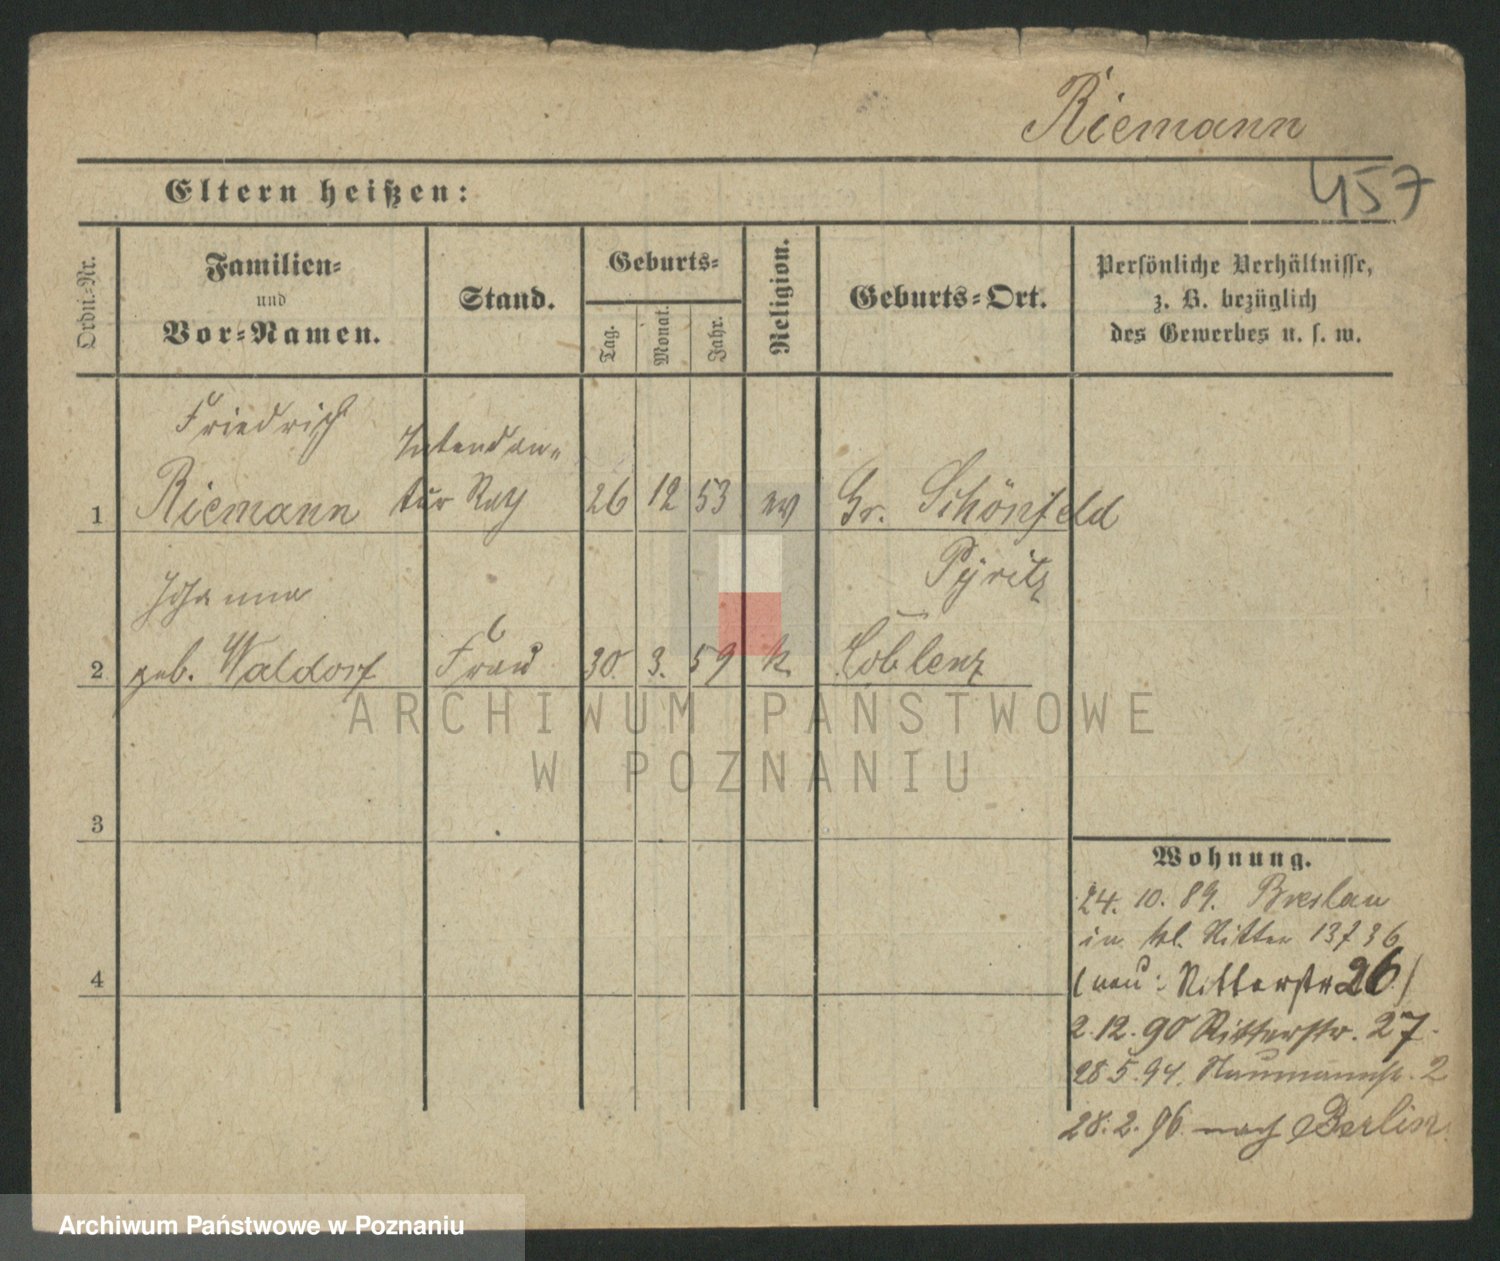 Riemann
457
Eltern heißen:
Ordn.-Nr.
Familien-
und
Vor-Namen.
Stand.
Geburts-
Tag.
Monat.
Jahr.
Religion.
Geburts-Ort.
Persönliche Verhältnisse,
z. B. bezüglich
des Gewerbes u. s. w.
Friedrich
Intendan-
1 Riemann tur Rath 26 12 53 ev Gr. Schönfeld
Pyritz
Johanna
2 geb. Waldorf Frau 30. 3. 59 k Coblenz
ARCHIWUM PAŃSTWOWE
W POZNANIU
3
4
Wohnung.
24. 10. 89. Breslau
in kl. Ritter 13
(neu: Ritterstr 26)
2.12.90 Ritterstr. 27.
28.5.94. Naumannstr. 2
28.2.96. nach Berlin.
Archiwum Państwowe w Poznaniu